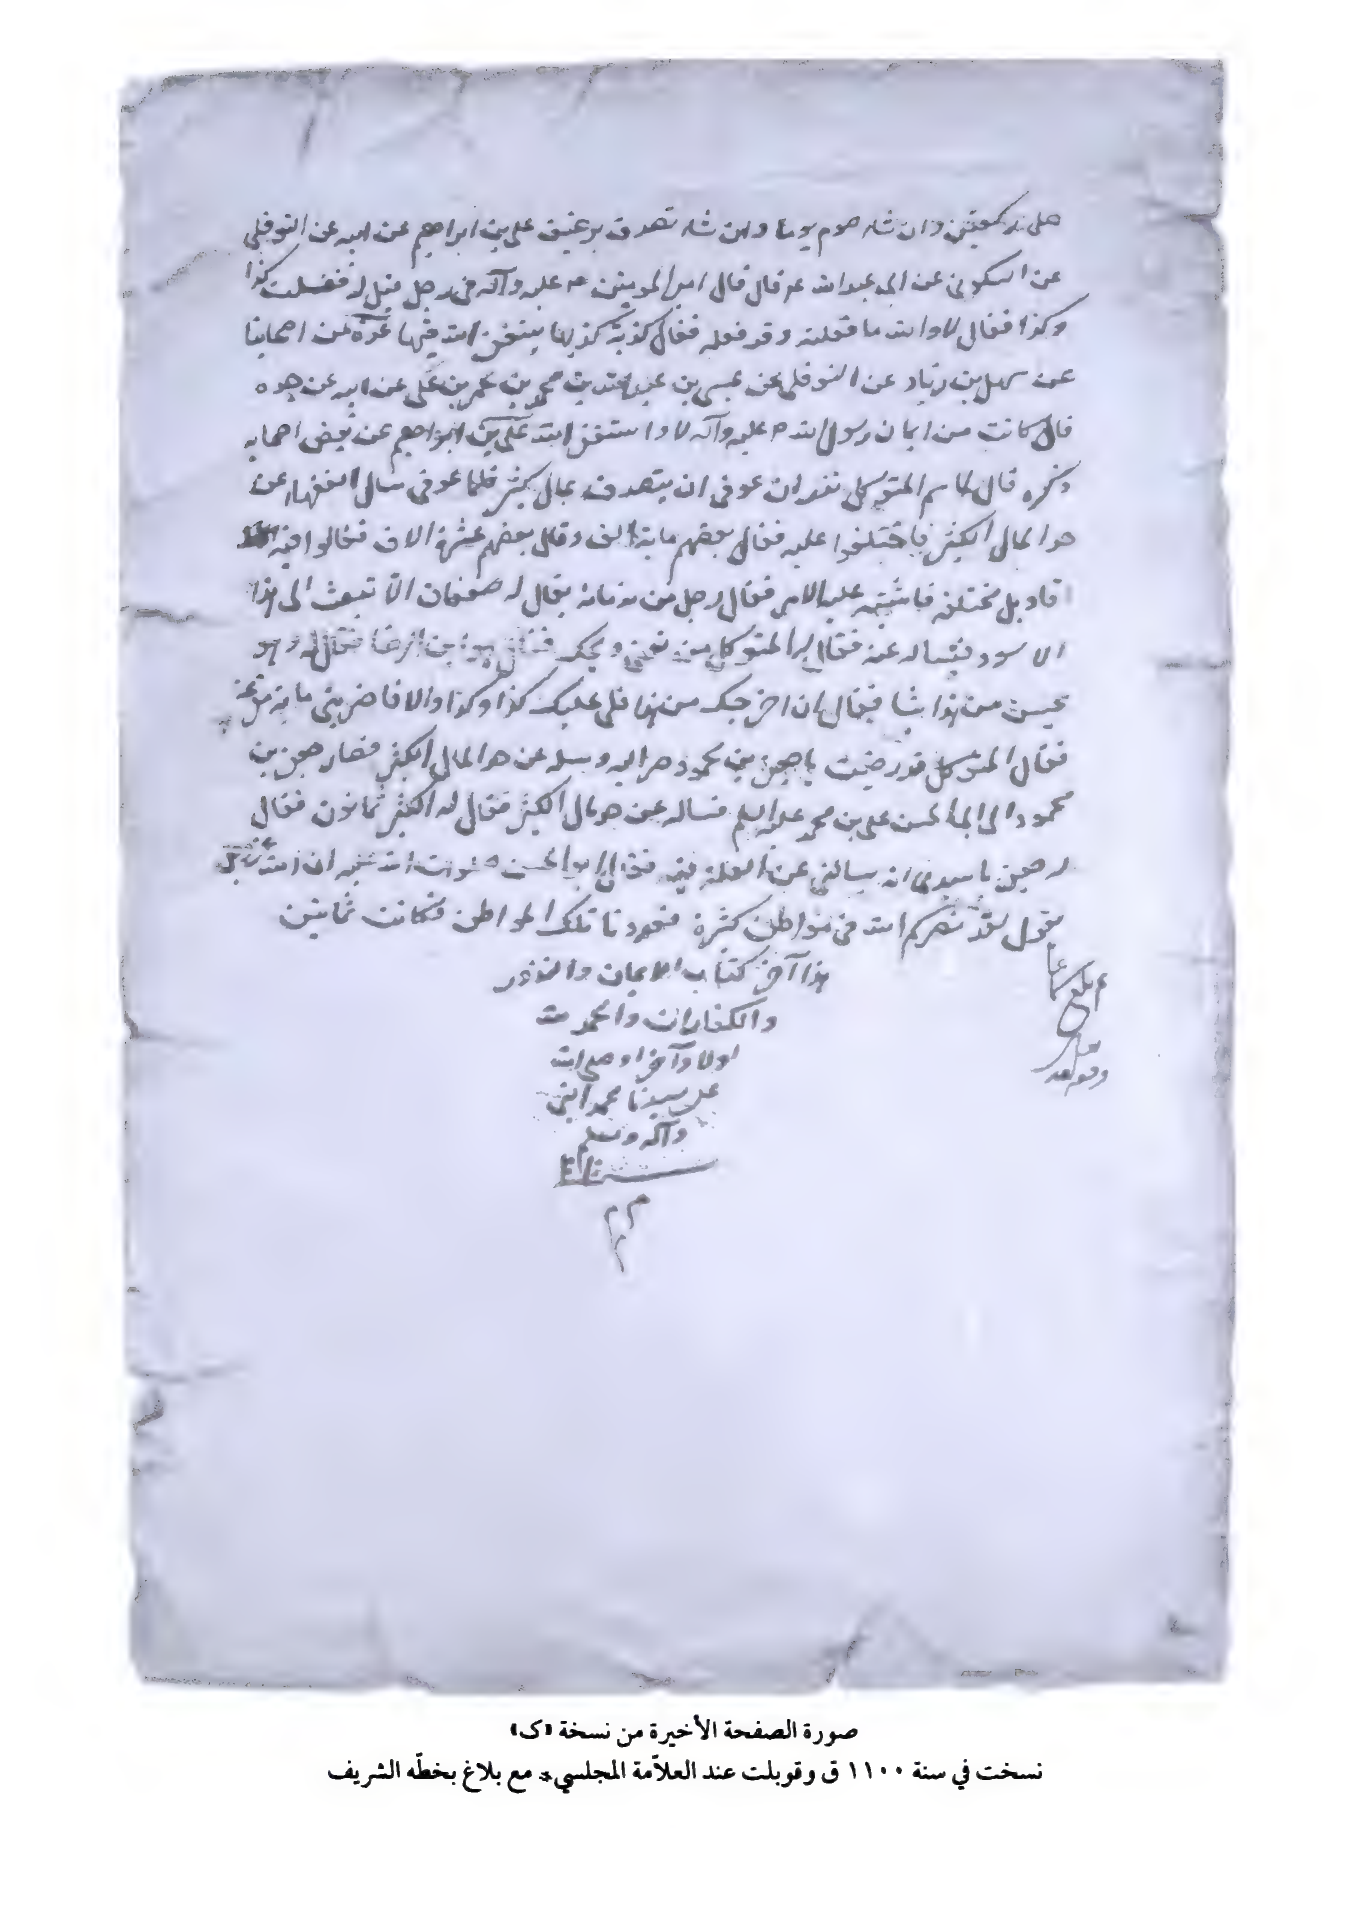 صلى ركعتين وان شاء صوم يوما وان شاء تصدق برغيف علي بن ابراهيم عن ابيه عن النوفلي
عن السكوني عن ابي عبد الله ع قال قال امير المومنين ص عليه وآله في رجل قيل له فعلت كذا
وكذا فقال لا والله ما فعلته وقد فعله فقال كذبة كذبها يستغفر الله منها عدة من اصحابنا
عن سهل بن زياد عن النوفلي عن عيسى بن عبد الله بن محمد بن عمر بن علي عن ابيه عن جده
قال كانت من ايمان رسول الله ص عليه وآله لا واستغفر الله علي بن ابراهيم عن بعض اصحابه
ذكره قال لما سم المتوكل نذر ان عوفي ان يتصدق بمال كثير فلما عوفي سال الفقهاء عن
حد المال الكثير فاختلفوا عليه فقال بعضهم ماية الف وقال بعضهم عشرة الاف فقالوا فيه
اقاويل مختلفة فاشتبه عليه الامر فقال رجل من ندمائه يقال له صفعان الا تبعث الى هذا
الاسود فتساله عنه فقال له المتوكل من تعني ويحك فقال ابن الرضا فقال له وهو
يحسن من هذا شيا فقال ان اخرجك من هذا فلي عليك كذا وكذا والا فاضربني ماية مقرعة
فقال المتوكل قد رضيت يا جعفر بن محمود صر اليه وسله عن حد المال الكثير فصار جعفر بن
محمود الى ابي الحسن علي بن محمد عليه السلم فساله عن حد المال الكثير فقال له الكثير ثمانون فقال
له جعفر يا سيدي انه يسالني عن العلة فيه فقال ابو الحسن صلوات الله عليه ان الله عز وجل
يقول لقد نصركم الله في مواطن كثيرة فعددنا تلك المواطن فكانت ثمانين
هذا آخر كتاب الايمان والنذور
والكفارات والحمد لله
اولا وآخرا وصلى الله
على سيدنا محمد النبي
وآله وسلم
بلغ سماعا
صورة الصفحة الأخيرة من نسخة «ك»
نسخت في سنة ١١٠٠ ق وقوبلت عند العلاّمة المجلسي مع بلاغ بخطّه الشريف